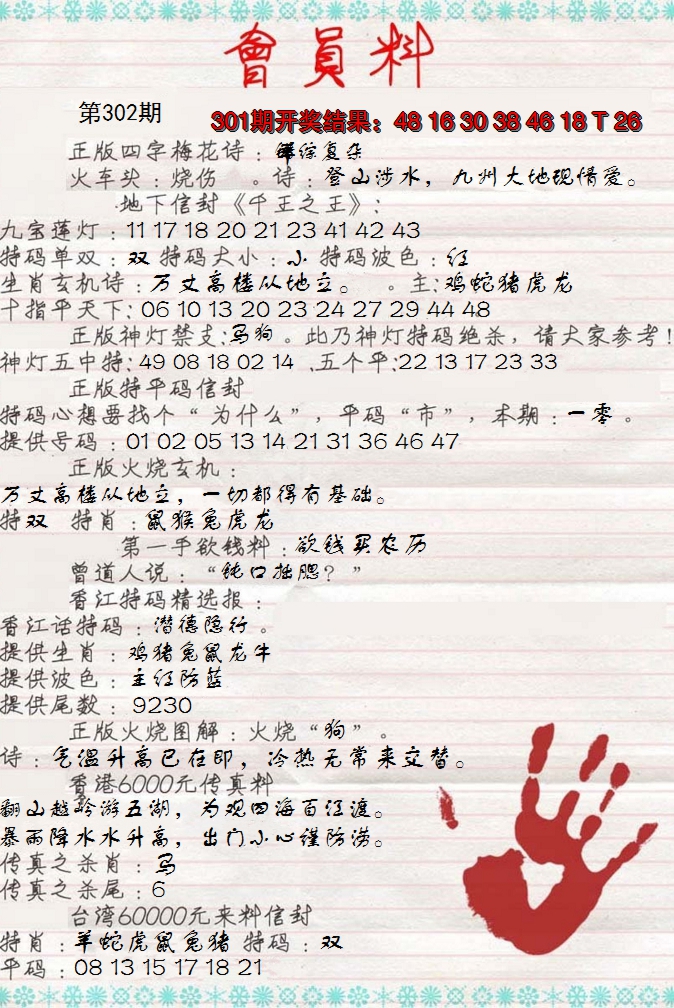 會員料
第302期
301期开奖结果：48 16 30 38 46 18 T 26
正版四字梅花诗：综复杂
火车头：烧伤 。诗：登山涉水，九州大地现情爱。
地下信封《千王之王》：
九宝莲灯：11 17 18 20 21 23 41 42 43
特码单双：双 特码大小：小 特码波色：红
生肖玄机诗：万丈高楼从地立。 。主:鸡蛇猪虎龙
十指平天下:06 10 13 20 23 24 27 29 44 48
正版神灯禁支:马狗。此乃神灯特码绝杀，请大家参考!
神灯五中特:49 08 18 02 14 .五个平:22 13 17 23 33
正版特平码信封
特码心想要找个“为什么”，平码“市”，本期：一零。
提供号码：01 02 05 13 14 21 31 36 46 47
正版火烧玄机：
万丈高楼从地立，一切都得有基础。
特双 特肖：鼠猴兔虎龙
第一手欲钱料：欲钱买农历
曾道人说：“钝口拙腮？”
香江特码精选报：
香江话特码：潜德隐行。
提供生肖：鸡猪兔鼠龙牛
提供波色：主红防蓝
提供尾数：9230
正版火烧图解：火烧“狗”。
诗：气温升高已在即，冷热无常来交替。
香港6000元传真料
翻山越岭游五湖，为观四海百江渡。
暴雨降水水升高，出门小心谨防涝。
传真之杀肖：马
传真之杀尾：6
台湾60000元来料信封
特肖：羊蛇虎鼠兔猪 特码：双
平码：08 13 15 17 18 21